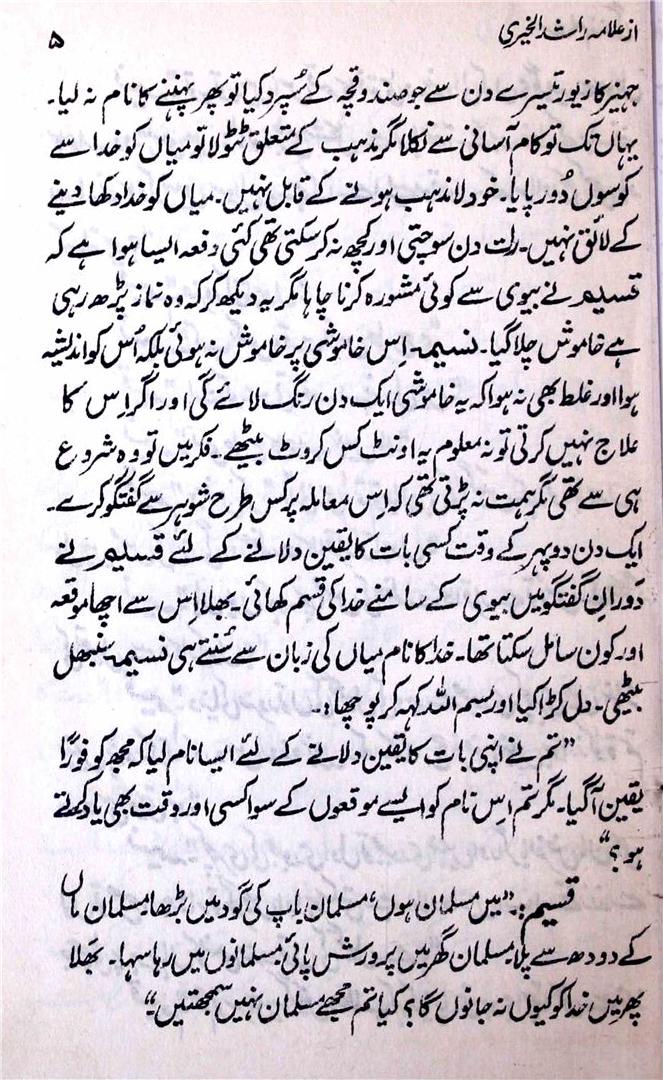 از علامہ راشد الخیری
۵
جہیز کا زیور تیسرے دن سے جو صندوقچہ کے سُپرد کیا تو پھر پہننے کا نام نہ لیا۔
یہاں تک تو کام آسانی سے نکلا مگر مذہب کے متعلق ٹٹولا تو میاں کو خدا سے
کوسوں دُور پایا۔ خود لامذہب ہونے کے قابل نہیں۔ میاں کو خدا دکھا دینے
کے لائق نہیں۔ رات دن سوچتی اور کچھ نہ کر سکتی تھی کئی دفعہ ایسا ہوا ہے کہ
قسیم نے بیوی سے کوئی مشورہ کرنا چاہا مگر یہ دیکھ کر کہ وہ نماز پڑھ رہی
ہے خاموش چلا گیا۔ نسیمہ اِس خاموشی پر خاموش نہ ہوئی بلکہ اُس کو اندیشہ
ہوا اور غلط بھی نہ ہوا کہ یہ خاموشی ایک دن رنگ لائے گی اور اگر اِس کا
علاج نہیں کرتی تو نہ معلوم یہ اونٹ کس کروٹ بیٹھے۔ فکر میں تو وہ شروع
ہی سے تھی مگر ہمت نہ پڑتی تھی کہ اِس معاملہ پر کس طرح شوہر سے گفتگو کرے۔
ایک دن دوپہر کے وقت کسی بات کا یقین دلانے کے لئے قسیم نے
دَورانِ گفتگو میں بیوی کے سامنے خدا کی قسم کھائی۔ بھلا اِس سے اچھا موقعہ
اور کون سا مل سکتا تھا۔ خدا کا نام میاں کی زبان سے سُنتے ہی نسیمہ سنبھل
بیٹھی۔ دل کڑا کیا اور بسم اللہ کہہ کر پوچھا:۔
”تم نے اپنی بات کا یقین دلانے کے لئے ایسا نام لیا کہ مجھ کو فورًا
یقین آ گیا۔ مگر تم اِس نام کو ایسے موقعوں کے سوا کسی اور وقت بھی یاد رکھتے
ہو؟“
قسیم:۔ ”میں مسلمان ہوں، مسلمان باپ کی گود میں بڑھا۔ مسلمان ماں
کے دودھ سے پلا۔ مسلمان گھر میں پرورش پائی۔ مسلمانوں میں رہا سہا۔ بھَلا
پھر میں خدا کو کیوں نہ جانوں گا؟ کیا تم مجھے مسلمان نہیں سمجھتیں۔“